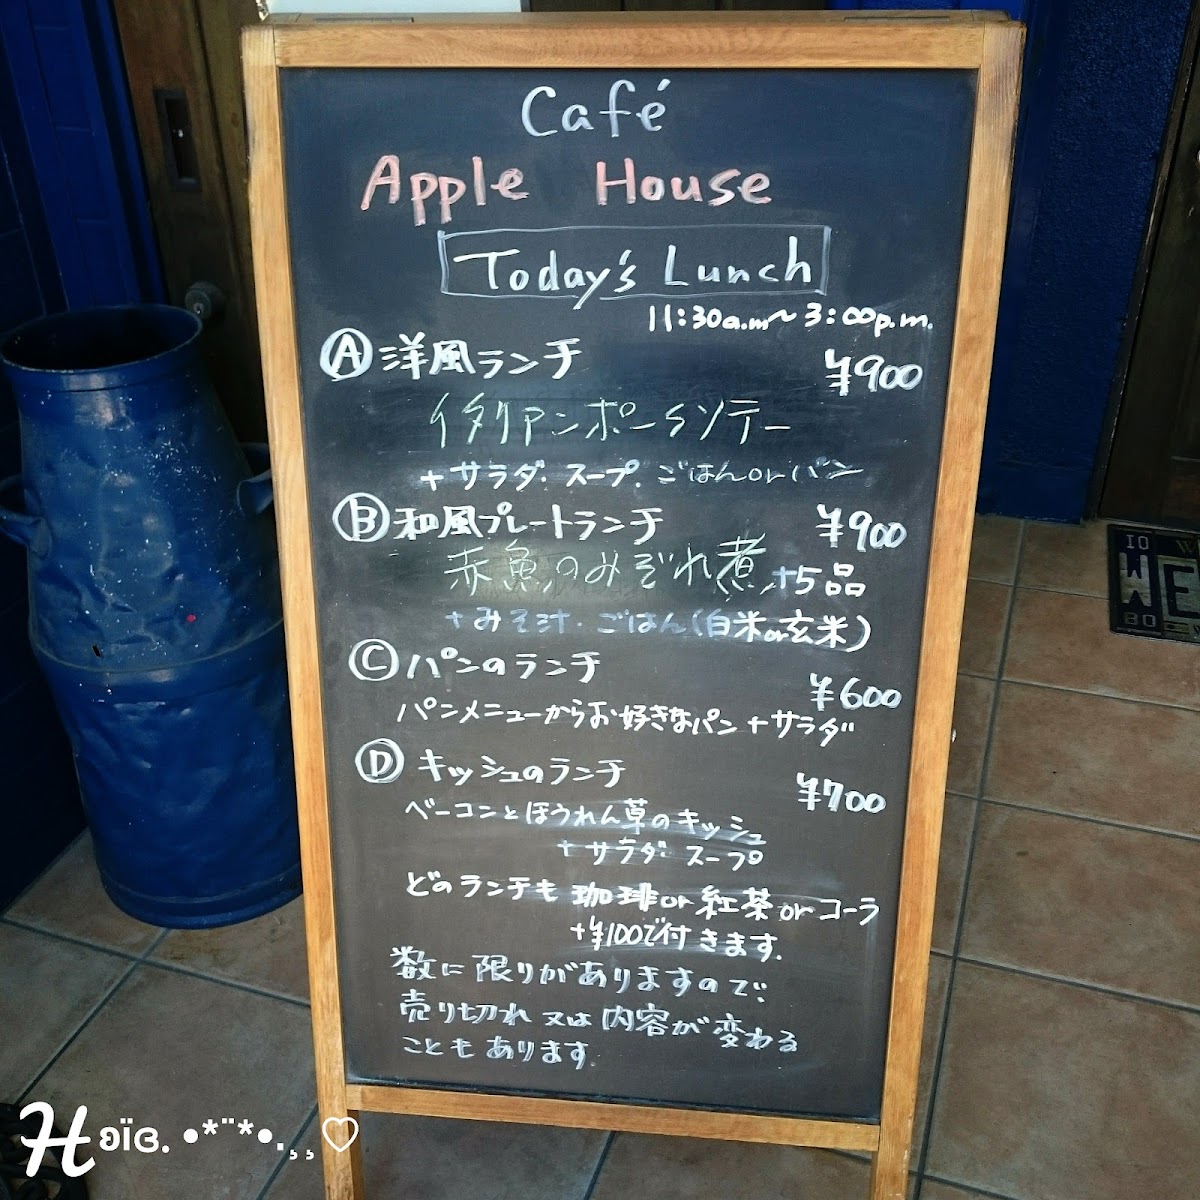 Café
Apple House
Today's Lunch
11:30a.m～3:00p.m.
Ⓐ洋風ランチ ¥900
イタリアンポークソテー
+サラダ・スープ・ごはんorパン
Ⓑ和風プレートランチ ¥900
赤魚のみぞれ煮+5品
+みそ汁・ごはん(白米or玄米)
Ⓒパンのランチ ¥600
パンメニューからお好きなパン+サラダ
Ⓓキッシュのランチ ¥700
ベーコンとほうれん草のキッシュ
+サラダ・スープ
どのランチも珈琲or紅茶orコーラ
+¥100で付きます.
数に限りがありますので、
売り切れ又は内容が変わる
こともあります.
IO
WE
BO
H